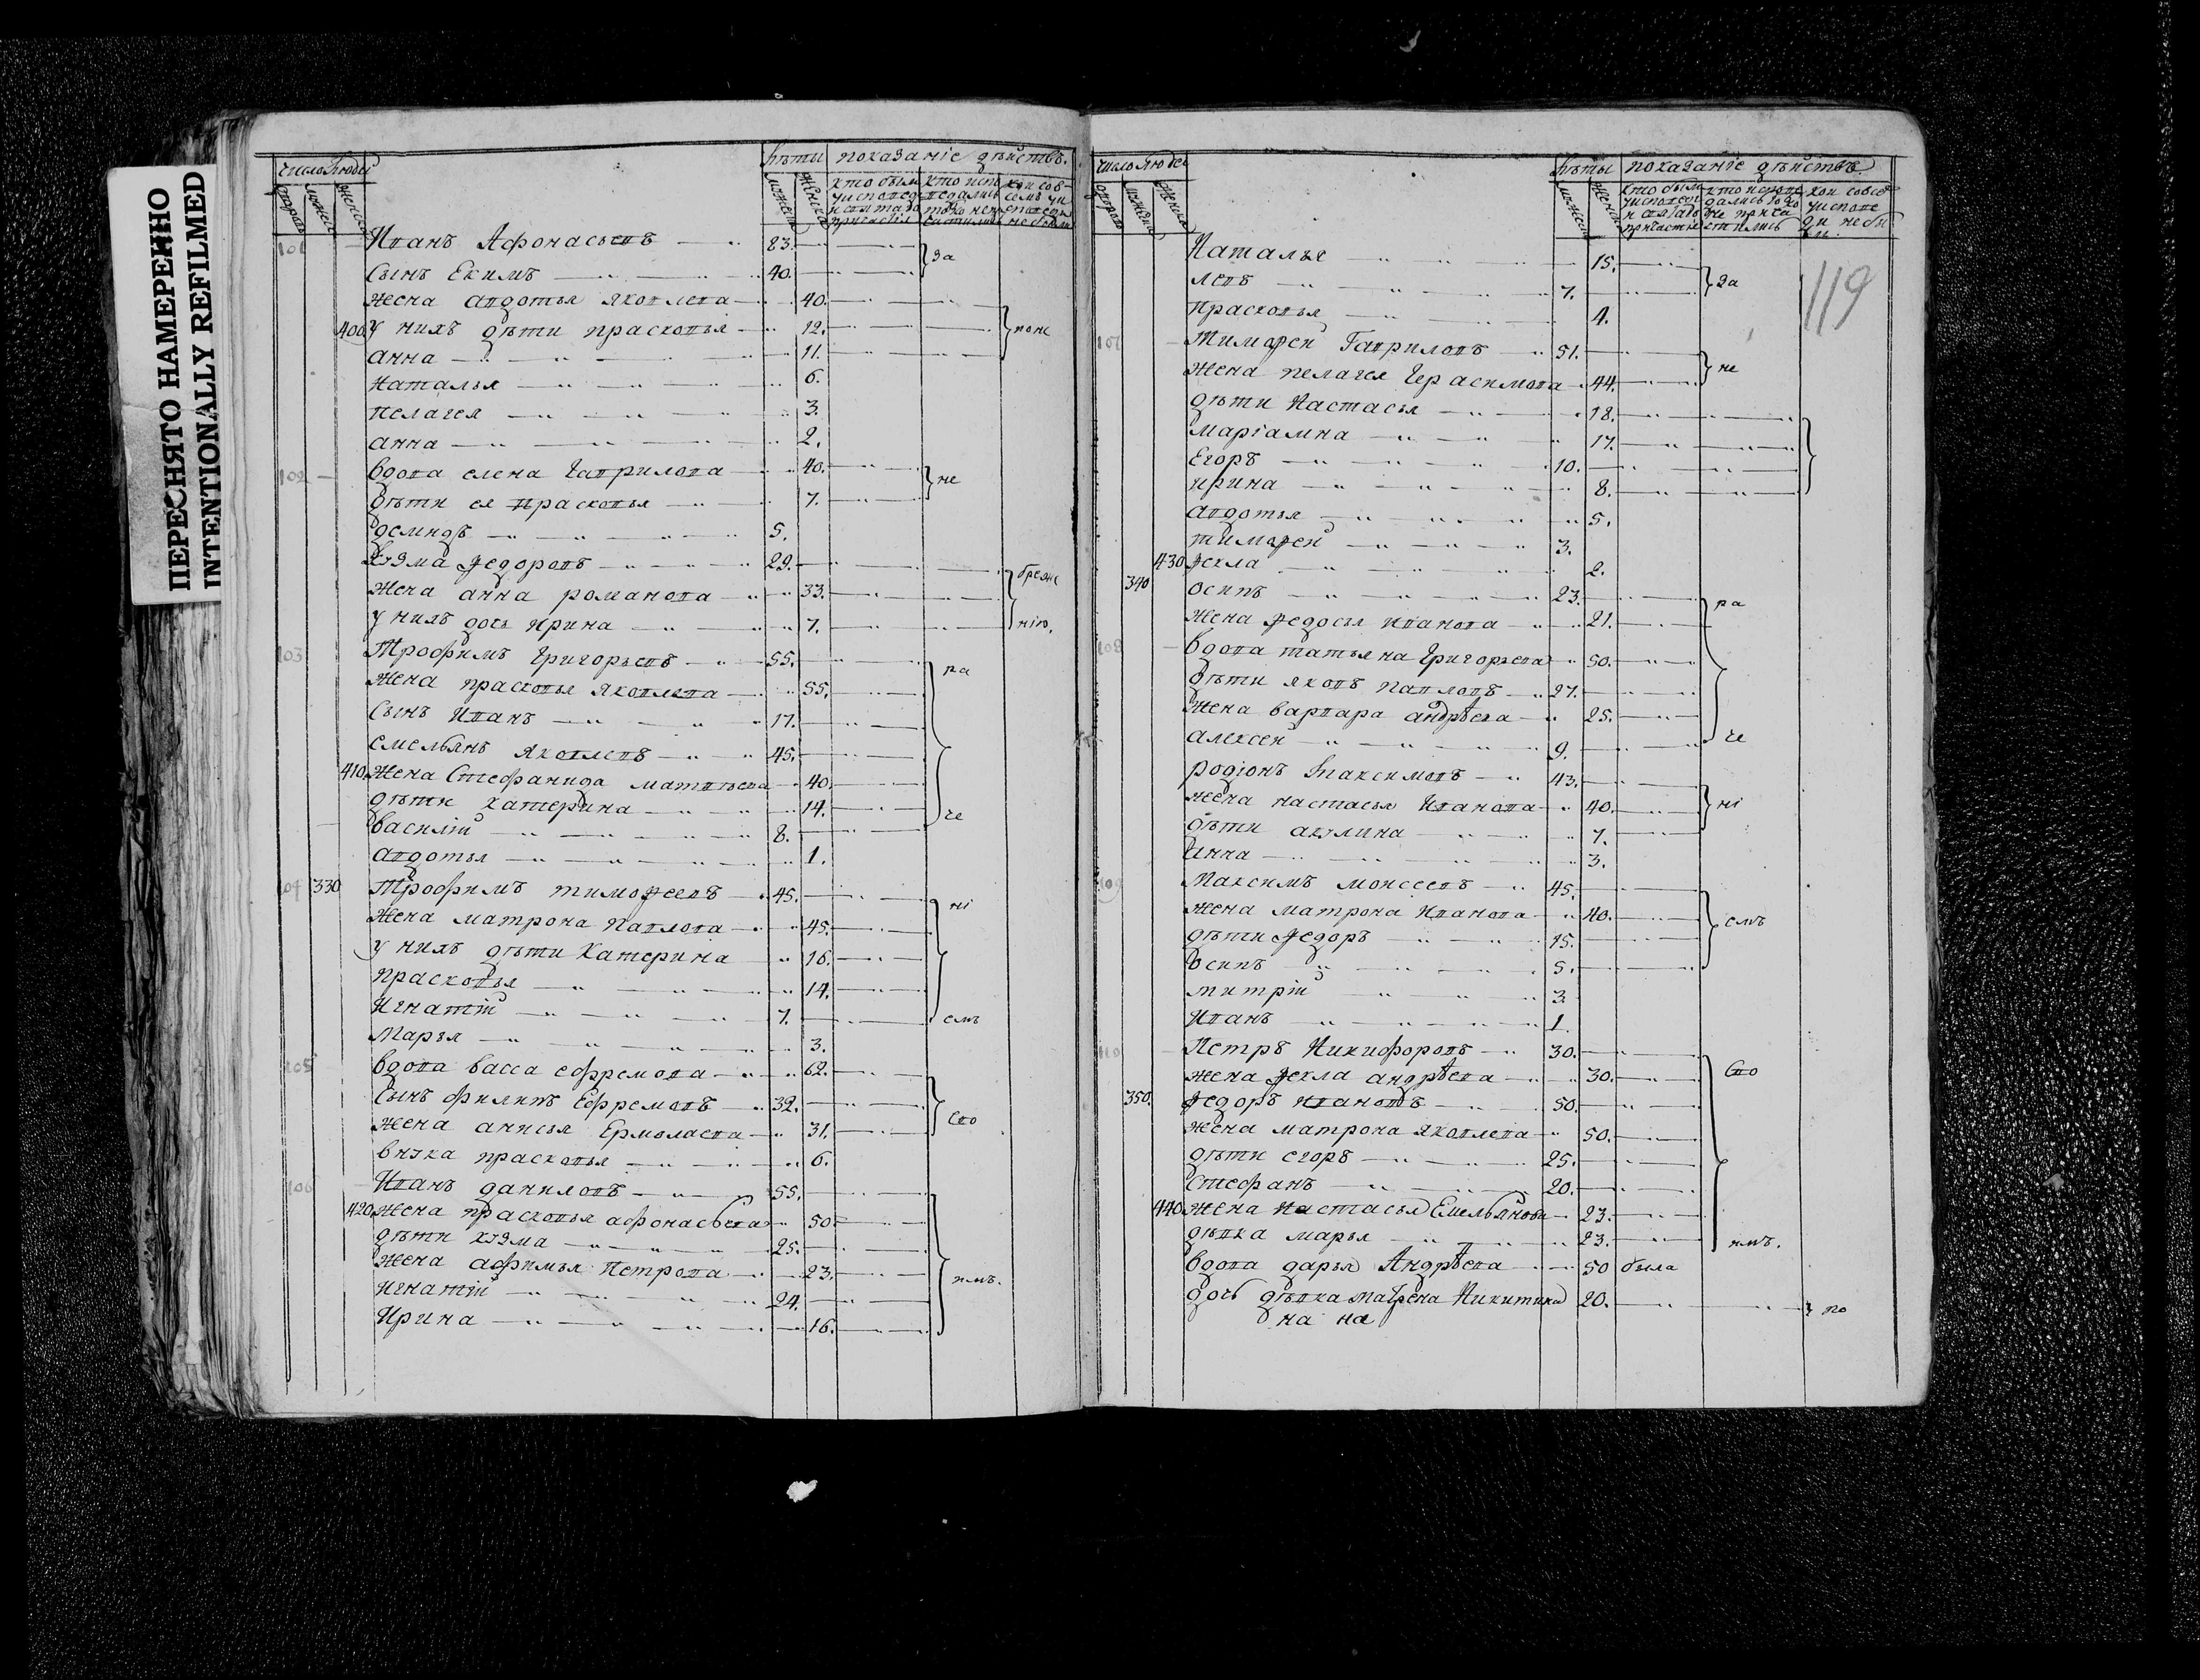 ПЕРЕСНЯТО НАМЕРЕННО
INTENTIONALLY REFILMED
число людеі
лѣты показаніе дѣиствъ.
мужеска женска
101 Иванъ Афонасьевъ 83. за
сынъ Екимъ 40.
жена авдотья яковлева 40.
400 у нихъ дѣти прасковья 12. поне
анна 11.
наталья 6.
пелагея 3.
анна 2.
102 вдова елена гаврилова 40. не
дѣти ея прасковья 7.
демидъ 5.
кузма ѳедоровъ 29. бреже
жена анна романова 33.
у нихъ дочь ирина 7. нію.
103 Трофимъ григорьевъ 55. ра
жена прасковья яковлева 55.
сынъ иванъ 17.
емельянъ яковлевъ 45.
410 жена стефанида матвѣева 40.
дѣти катерина 14. че
василій 8.
авдотья 1.
104 330 Трофимъ тимоѳеевъ 45. ні
жена матрона павлова 45.
у нихъ дѣти катерина 16.
прасковья 14.
игнатій 7. емъ
марья 3.
105 вдова васса ефремова 62.
сынъ филипъ Ефремовъ 32. сво
жена анисья Ермолаева 31.
внука прасковья 6.
106 Иванъ даниловъ 55.
420 жена прасковья афонасьева 50.
дѣти кузма 25.
жена афимья Петрова 23. имъ.
игнатій 24.
Ирина 16.
число людеі
лѣты показаніе дѣиствъ
мужеска женска
119
Наталья 15. за
левъ 7.
Прасковья 4.
107 Тимоѳей Гавриловъ 51. не
жена пелагея Герасимова 44.
дѣти Настасья 18.
маріамна 17.
Егоръ 10.
ирина 8.
авдотья 5.
тимоѳей 3.
430 ѳекла 2.
340 осипъ 23. ра
жена ѳедосья иванова 21.
108 вдова татьяна григорьева 50.
дѣти яковъ павловъ 27.
жена варвара андрѣева 25.
алексей 9. че
родіонъ максимовъ 43. ні
жена настасья Иванова 40.
дѣти акулина 7.
анна 3.
109 Максимъ моисеевъ 45. емъ
жена матрона Иванова 40.
дѣти ѳедоръ 15.
осипъ 5.
митрій 3.
Иванъ 1.
110 Петръ Никифоровъ 30. сво
жена ѳекла андрѣева 30.
350. ѳедоръ ивановъ 50.
жена матрона яковлева 50.
дѣти егоръ 25.
стефанъ 20.
440 жена Настасья Емельянова 23.
дѣвка марья 23. имъ.
вдова дарья Андрѣева 50 была
дочь дѣвка матрена Никитина 20. по
на на